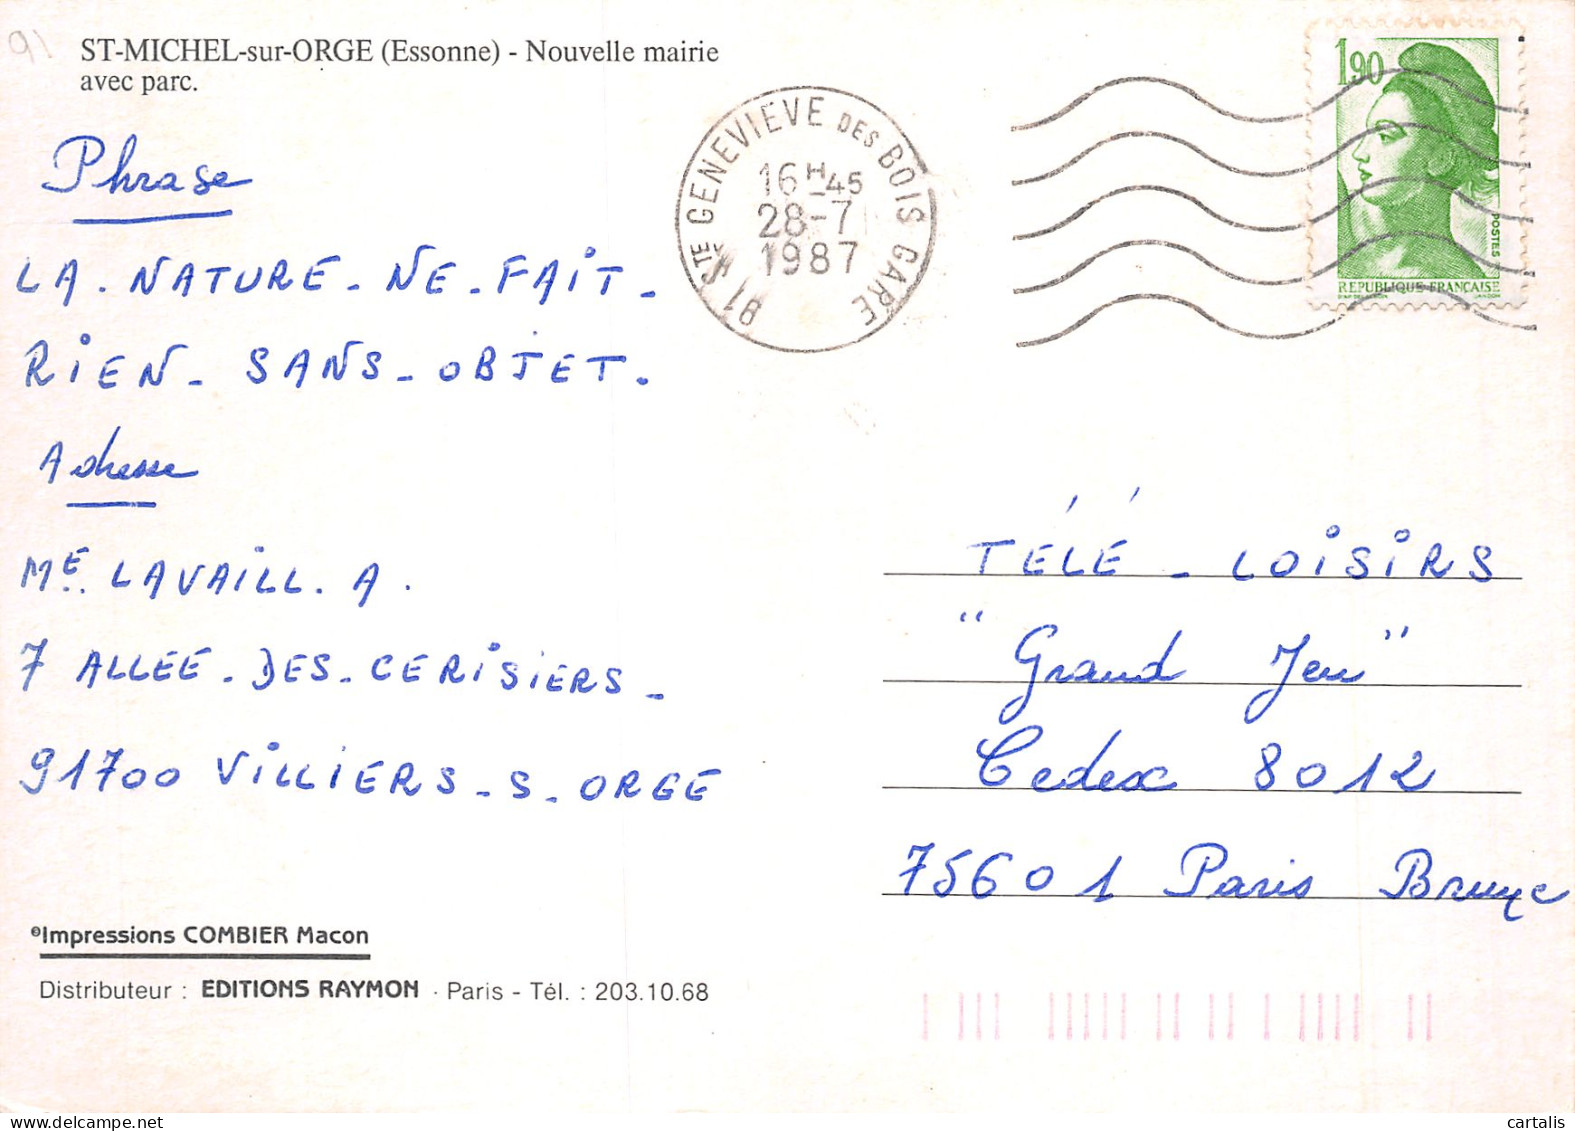 91
ST-MICHEL-sur-ORGE (Essonne) - Nouvelle mairie
avec parc.
Phrase
LA. NATURE - NE - FAiT -
RiEN - SANS - OBJET.
Adresse
ME. LAVAiLL. A.
7 ALLEE - DES - CERiSiERS -
91700 ViLLiERS - S - ORGE
©Impressions COMBIER Macon
Distributeur : EDITIONS RAYMON - Paris - Tél. : 203.10.68
91 STE GENEVIEVE DES BOIS GARE
16 H 45
28-7
1987
1,90
POSTES
REPUBLIQUE FRANÇAISE
TÉLÉ - LOiSiRS
"Grand Jeu"
Cedex 8012
75601 Paris Brune
cartalis